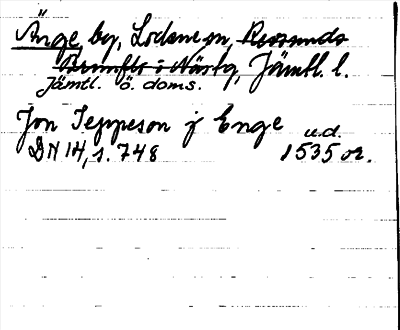 Änge, by, Lockne sn, Revsunds
Brunflo i Näskg, Jämtl. l.
Jämtl. ö. doms.
Jon Jeppeson j Enge u.d.
DN 14, s. 748 1535 or.